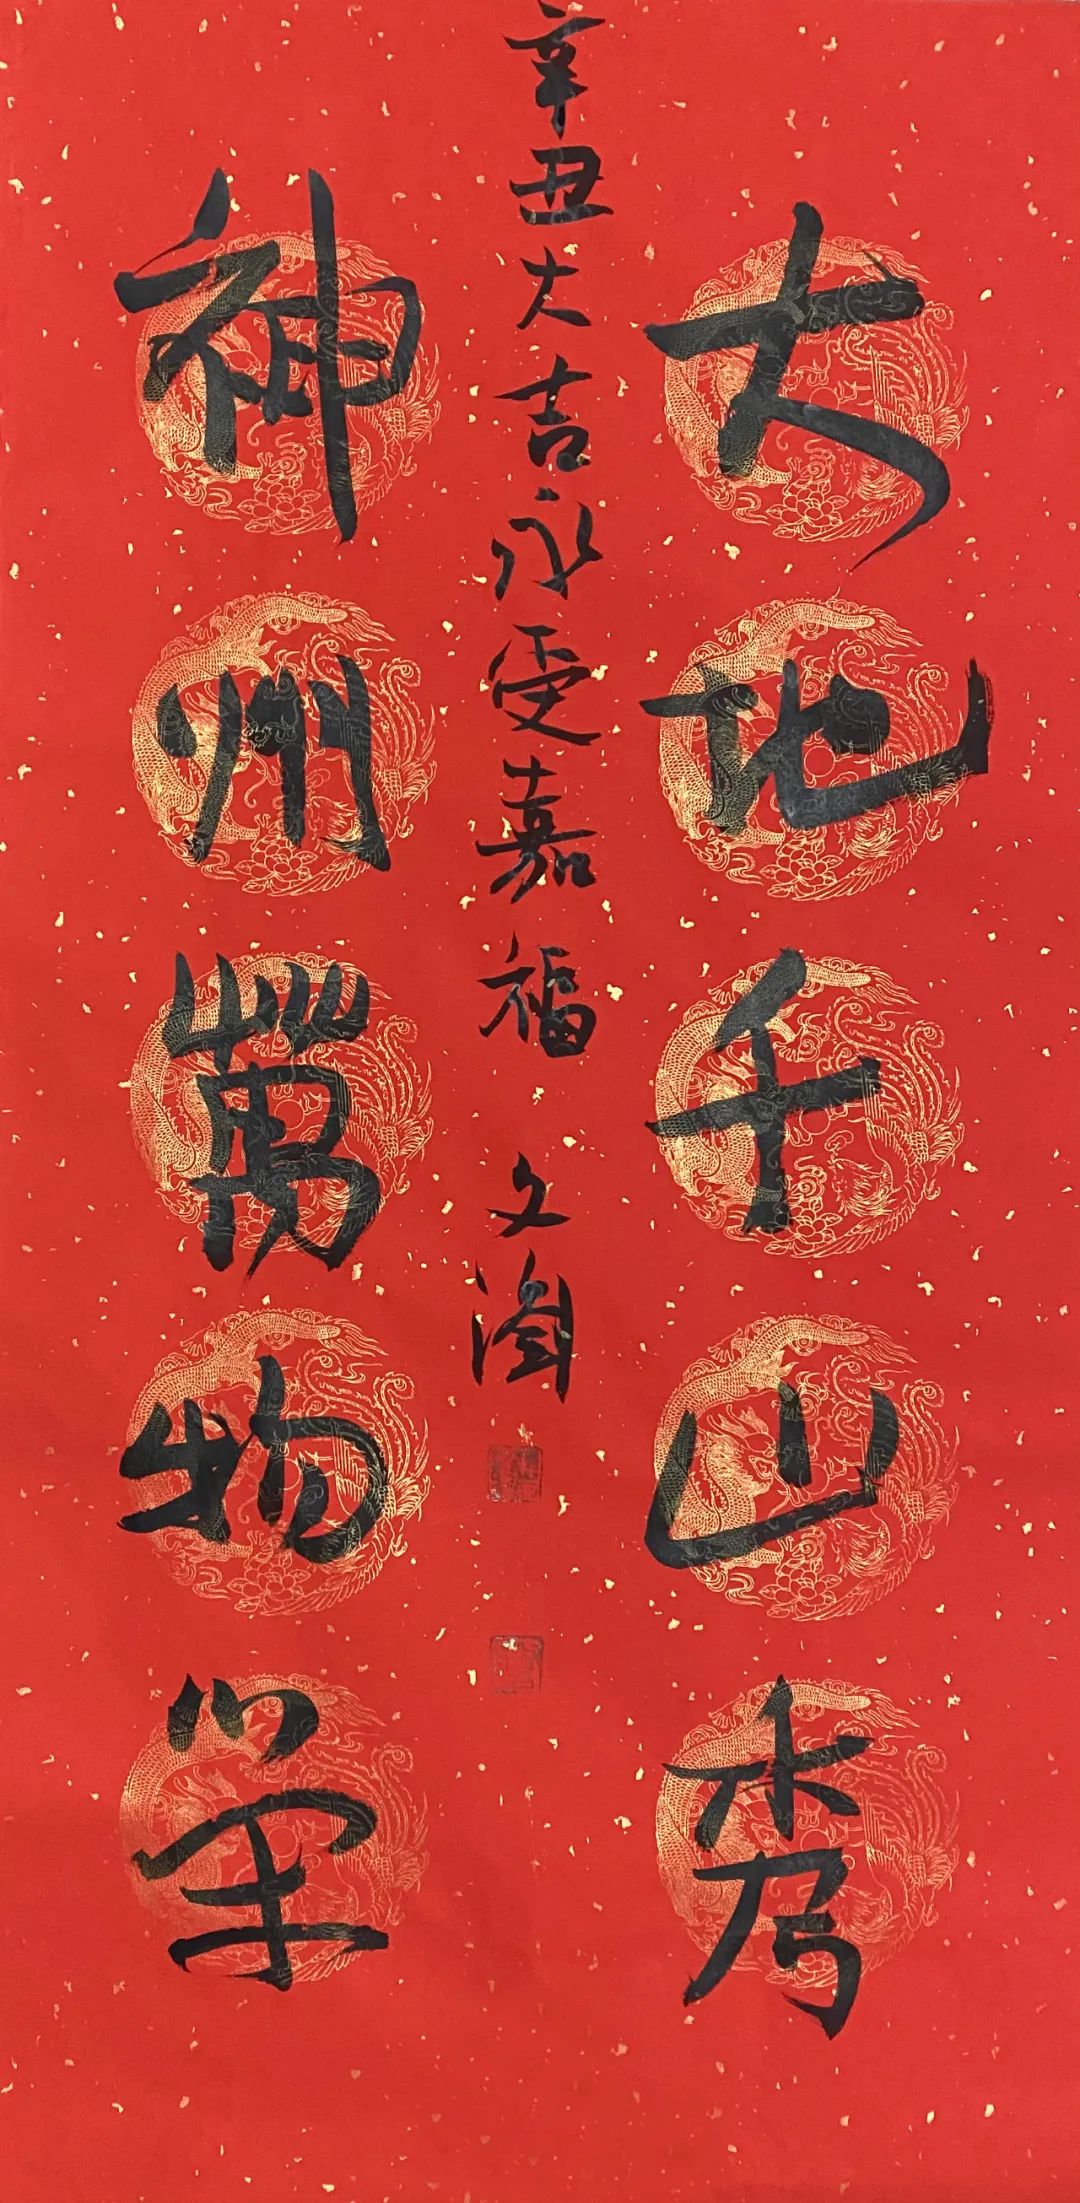 大地千山秀
辛丑大吉永受嘉福 文
神州萬物榮